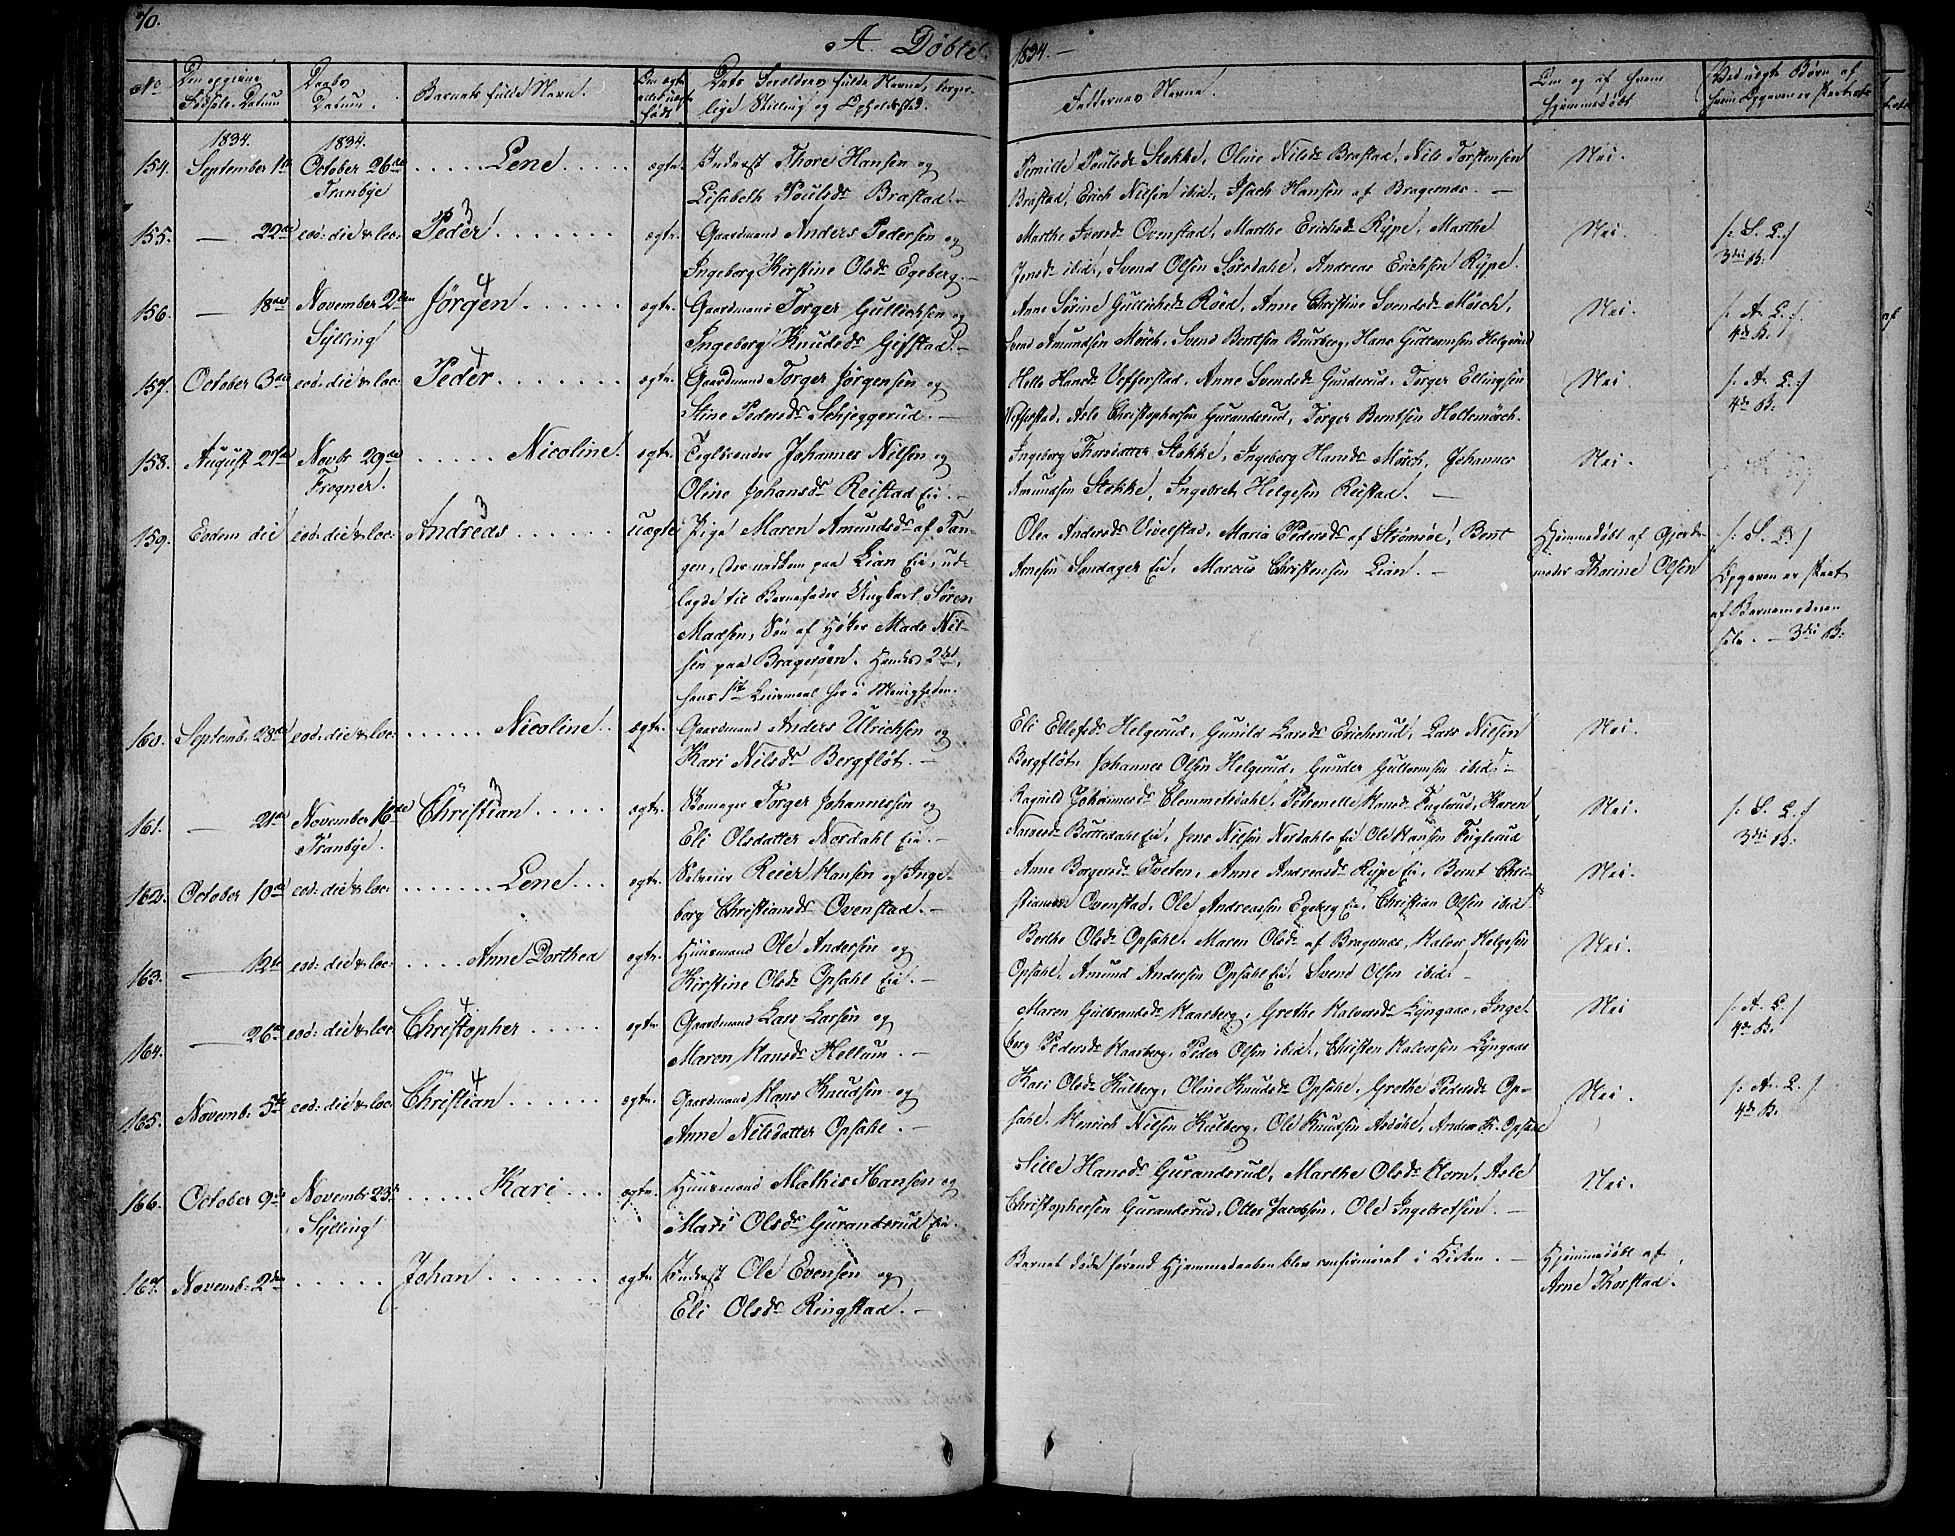 70.
A. Döbte
1834. —
No
Den opgivne Födsels-Datum
Daabs Datum.
Barnets fulde Navn.
Dets Forældres fulde Navne, borgerlige Stilling og Opholdssted.
Faddernes Navne.
Om og af hvem hjemmedöbt
1834. 1834.
154. September 1ste October 26de Tranbye ..... Lene ..... ægte. Inderst Thore Hansen og
Lisabeth Poulsdr Brastad. —
Pernille Poulsdr Stokke, Oline Nilsdr Brastad, Nils Torstensen
Brastad, Erich Nilsen ibid:, Isach Hansen af Bragernæs. —
Nei.
155. — 22de eod: die & loc: Peder 3 ægte. Gaardmand Anders Pedersen og
Ingeborg Kirstine Olsdr Egeberg. —
Marthe Iversdr Ovenstad, Marthe Erichsdr Rype, Marthe
Jensdr ibid:, Svend Olsen Sörsdahl, Andreas Erichsen Rype.
Nei. /: S. L. :/
3die B.
156. — 18de November 2den Sylling Jörgen 4 ægte. Gaardmand Torger Gullichsen og
Ingeborg Knudsdr Gifstad. —
Anne Sörine Gullichsdr Röed, Anne Christine Svendsdr Mörch,
Svend Amundsen Mörch, Svend Berntsen Buurberg, Hans Guttormsen Helgerud
Nei. /: A. L. :/
4de B.
157. October 3die eod: die & loc: Peder 4 ægte. Gaardmand Torger Jörgensen og
Stine Pedersdr Schjeggerud. —
Helle Hansdr Vefferstad, Anne Svendsdr Gunderud, Torger Ellingsen
Asle Christophersen Gurandsrud, Torger Berntsen Holtsmörch.
Nei. /: A. L. :/
4de B.
158. August 27de Novbr 29de Frogner. ..... Nicoline. ægte. Teglbrænder Johannes Nilsen og
Oline Johansdr Reistad Eie. —
Ingeborg Thorsdatter Stokke, Ingeborg Hansdr Mörch, Johannes
Amundsen Stokke, Ingebret Helgesen Reistad. —
Nei.
159. Eodem die eod: die & loc: Andreas 3 uægte Pige Maren Amundsdr af Tan-
gen, der nedkom paa Lian Eie, ud-
lagde til Barnefader Ungkarl Sören
Madsen, Sön af Höker Mads Nil-
sen paa Bragerøen. Hendes 2det,
hans 1ste Leiermaal her i Menigheden.
Olea Andersdr Vivelstad, Maria Pedersdr af Strömsöe, Bent
Arnesen Söndager Eie, Marcus Christensen Lian. —
Hjemmedöbt af Gjorde-
moder Thorine Olsen
/: S. L. :/
Opgaven er skeet
af Barnemoderen
selv. — 3die B.
160. Septemb. 23de eod: die & loc: ...... Nicoline. ægte. Gaardmand Anders Ulrichsen og
Kari Nilsdr Bergflöt. —
Eli Ellefsdr Helgerud, Gunild Larsdr Ericherud, Lars Nilsen
Bergflöt, Johannes Olsen Helgerud, Gunder Guttormsen ibid: —
Nei.
161. — 21de November 16de Tranbye. Christian 3 ægte. Skomager Torger Johannessen og
Eli Olsdatter Nordahl Eie. —
Ragnild Johannesdr Clemmetsdahl, Petronelle Hansdr Fuglerud, Karen
Jens Nilsen Nordahls Eie Ole Hansen Fuglerud
Nei. /: S. L. :/
3die B.
162. October 10de eod: die & loc: ....... Lene ... ægte. Selveier Reier Hansen og Inge-
borg Christiansdr Ovenstad. —
Anne Borgersdr Tveten, Anne Andreasdr Rype Eie, Bernt Chri-
stiansen Ovenstad, Ole Andreassen Egeberg Eie, Christian Olsen ibid:
Nei.
163. — 12te eod: die & loc: .... Anne Dorthea ægte. Huusmand Ole Andersen og
Kirstine Olsdr Opsahl Eie. —
Berthe Olsdr Opsahl, Maren Olsdr af Bragernæs, Halvor Helgesen
Opsahl, Amund Andersen Opsahl Eie, Svend Olsen ibid: —
Nei.
164. — 26de eod: die & loc: Christopher 4 ægte. Gaardmand Lars Larsen og
Maren Hansdr Hellum. —
Maren Gulbrandsdr Haarberg, Grethe Halvorsdr Lyngaas, Inge-
borg Pedersdr Haarberg, Peder Olsen ibid:, Christen Halvorsen Lyngaas
Nei /: A. L. :/
4de B.
165. Novemb. 5te eod: die & loc: Christian 4 ægte. Gaardmand Hans Knudsen og
Anne Nilsdatter Opsahl. —
Kari Olsdr Kulberg, Oline Knudsdr Opsahl, Grethe Pedersdr Op-
sahl, Henrich Nilsen Kulberg, Ole Knudsen Asdöhl, Anders K. Opsahl
Nei. /: A. L. :/
4de B.
166. October 9de Novembr 23de Sylling ..... Kari ... ægte. Huusmand Mathis Hansen og
Mari Olsdr Gurandsrud Eie.
Sille Hansdr Gurandsrud, Marthe Olsdr Horn, Asle
Christophersen Gurandsrud, Otter Jacobsen, Ole Ingebretsen. —
Nei.
167. Novemb. 2den ..... Johan ...... ægte. Inderst Ole Evensen og
Eli Olsdr Ringstad. —
Barnet döde förend Hjemmedaaben blev confirmeret i Kirken. —
Hjemmedöbt af
Arne Thorstad.